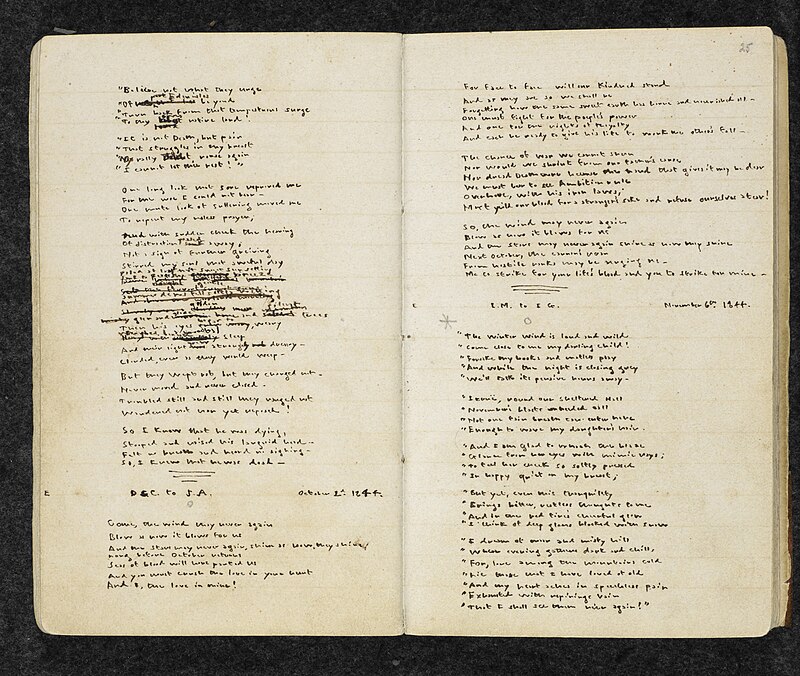 "Believe not what they urge
"Of Eden isles beyond
"Turn back from that tempestuous surge
"To thy native land!
"It is not Death, but pain
"That struggles in my breast
"Nay rally rouse again
"I cannot let thee rest!"
One long look that sore reproved me
For the woe I could not bear -
One mute look of suffering moved me
To repent my useless prayer;
And with sudden check the heaving
Of distraction passed away;
Not a sign of further grieving
Stirred my soul that awful day
Paled at last the sweet sun setting
Then his eyes weary
sleep
And their light dreary
Clouded, even as they would weep -
But they wept not, but they changed not -
Never moved and never closed -
Troubled still and still they ranged not
Wandered not nor yet reposed!
So I knew that he was dying,
Stooped and raised his languid head -
Felt no breath and heard no sighing -
So, I knew that he was dead -
E D.G.C. to J.A. October 2d. 1844.
Come, the wind may never again
Blow as now it blows for us
And the stars may never again, shine as now, they shine,
Long before October returns
Seas of blood will have parted us
And you must crush the love in your heart
And I, the love in mine!
25
For face to face will our Kindred stand
And as they are so we shall be
Forgetting how the same sweet earth has borne and nourished all -
One must fight for the people's power
And one for the rights of royalty
And each be ready to give his life to work the other's fall -
The chance of war we cannot shun
Nor would we shrink from our fathers' cause
Nor dread Death more because the hand that gives it may be dear
We must bear to see Ambition rule
Over Love, with his iron laws;
Must yield our blood for a stranger's sake and refuse ourselves a tear!
So, the wind may never again
Blow as now it blows for us
And the stars may never again shine as now they shine
Next October, the cannon's roar
From hostile ranks may be urging us -
Me to strike for your life's blood and you to strike for mine -
E E.M. to E.G. November 6th. 1844.
"The winter wind is loud and wild
"Come close to me my darling child!
"Forsake thy books and mateless play
"And while the night is closing grey
"We'll talk its pensive hours away -
"Iernë, round our sheltered Hall
"November's blasts unheeded call
"Not one faint breath can enter here
"Enough to wave my daughter's hair -
"And I am glad to watch the blaze
"Glance from her eyes with mimic rays;
"To feel her cheek so softly pressed
"In happy quiet on my breast;
"But yet, even this tranquillity
"Brings bitter, restless thoughts to me
"And in the red fire's cheerful glow
"I think of deep glens blocked with snow
"I dream of moor and misty hill
"Where evening gathers dark and chill,
"For, lone among the mountains cold
"Lie those that I have loved of old
"And my heart aches in speechless pain
"Exhausted with repinings vain
"That I shall see them ne'er again!"